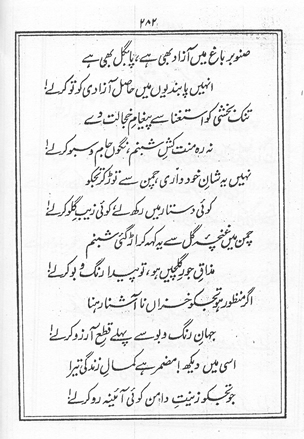 ۲۸۲
صنوبر باغ میں آزاد بھی ہے، پا بگل بھی ہے
انہیں پابندیوں میں حاصل آزادی کو تو کر لے!
تنک بخشی کو استغنا سے پیغامِ خجالت دے
نہ رہ منت کشِ شبنم، نگوں جام و سبو کر لے!
نہیں یہ شانِ خودداری، چمن سے توڑ کر تجکو
کوئی دستار میں رکھ لے کوئی زیبِ گلو کر لے!
چمن میں غنچۂ گل سے یہ کہہ کر اڑ گئی شبنم
مذاقِ جورِ گلچیں ہو، تو پیدا رنگ و بو کر لے!
اگر منظور ہو تجکو خزاں ناآشنا رہنا
جہانِ رنگ و بو سے پہلے قطعِ آرزو کر لے!
اسی میں دیکھ! مضمر ہے کمالِ زندگی تیرا
جو تجکو زینتِ دامن کوئی آئینہ رو کر لے!